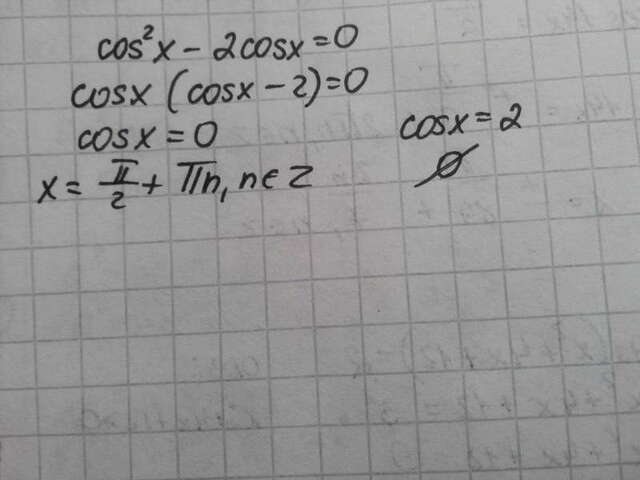 cos²x − 2cosx = 0
cosx (cosx − 2) = 0
cosx = 0
cosx = 2
x = π/2 + πn, n ∈ Z
∅